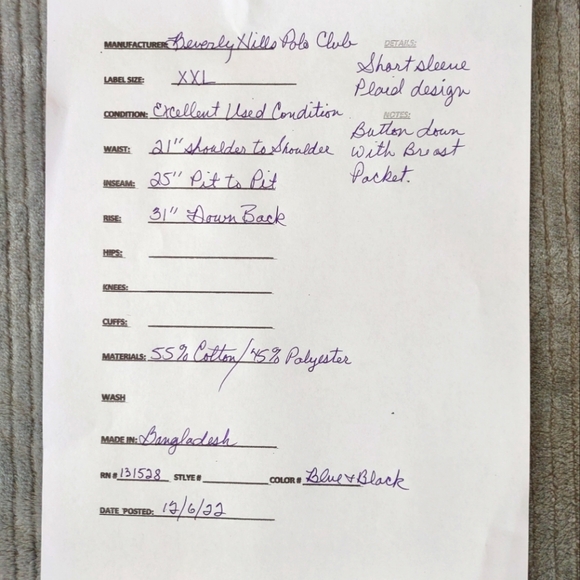 MANUFACTURER: Beverly Hills Polo Club
DETAILS:
Short sleeve
Plaid design
LABEL SIZE: XXL
CONDITION: Excellent Used Condition
NOTES:
Button down
with Breast
Pocket.
WAIST: 21" shoulder to Shoulder
INSEAM: 25" Pit to Pit
RISE: 31" Down Back
HIPS:
KNEES:
CUFFS:
MATERIALS: 55% Cotton/45% Polyester
WASH
MADE IN: Bangladesh
RN # 131528 STLYE # COLOR # Blue & Black
DATE POSTED: 12/6/22